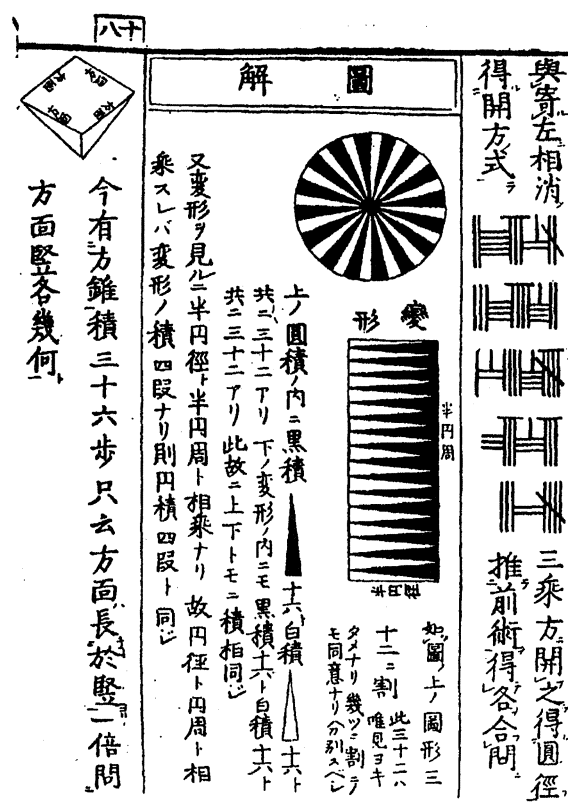 十八
與寄左相消
得開方式
三乘方開之得圓徑
推前術得各合問
圖解
變形
半円周
如圖上ノ圓形三
十二ニ割此三十二ハ唯見ヨキ
タメナリ幾ツニ割テ
モ同意ナリ分別スベシ
上ノ圓積ノ内ニ黒積十六ト白積十六ト
共ニ三十二アリ下ノ変形ノ内ニモ黒積十六ト白積十六ト
共ニ三十二アリ此故ニ上下トモニ積相同ジ
又変形ヲ見ルニ半円徑ト半円周ト相乘ナリ故円徑ト円周ト相
乘スレバ変形ノ積四段ナリ則円積四段ト同ジ
今有方錐積三十六歩只云方面長於竪一倍問
方面竪各幾何